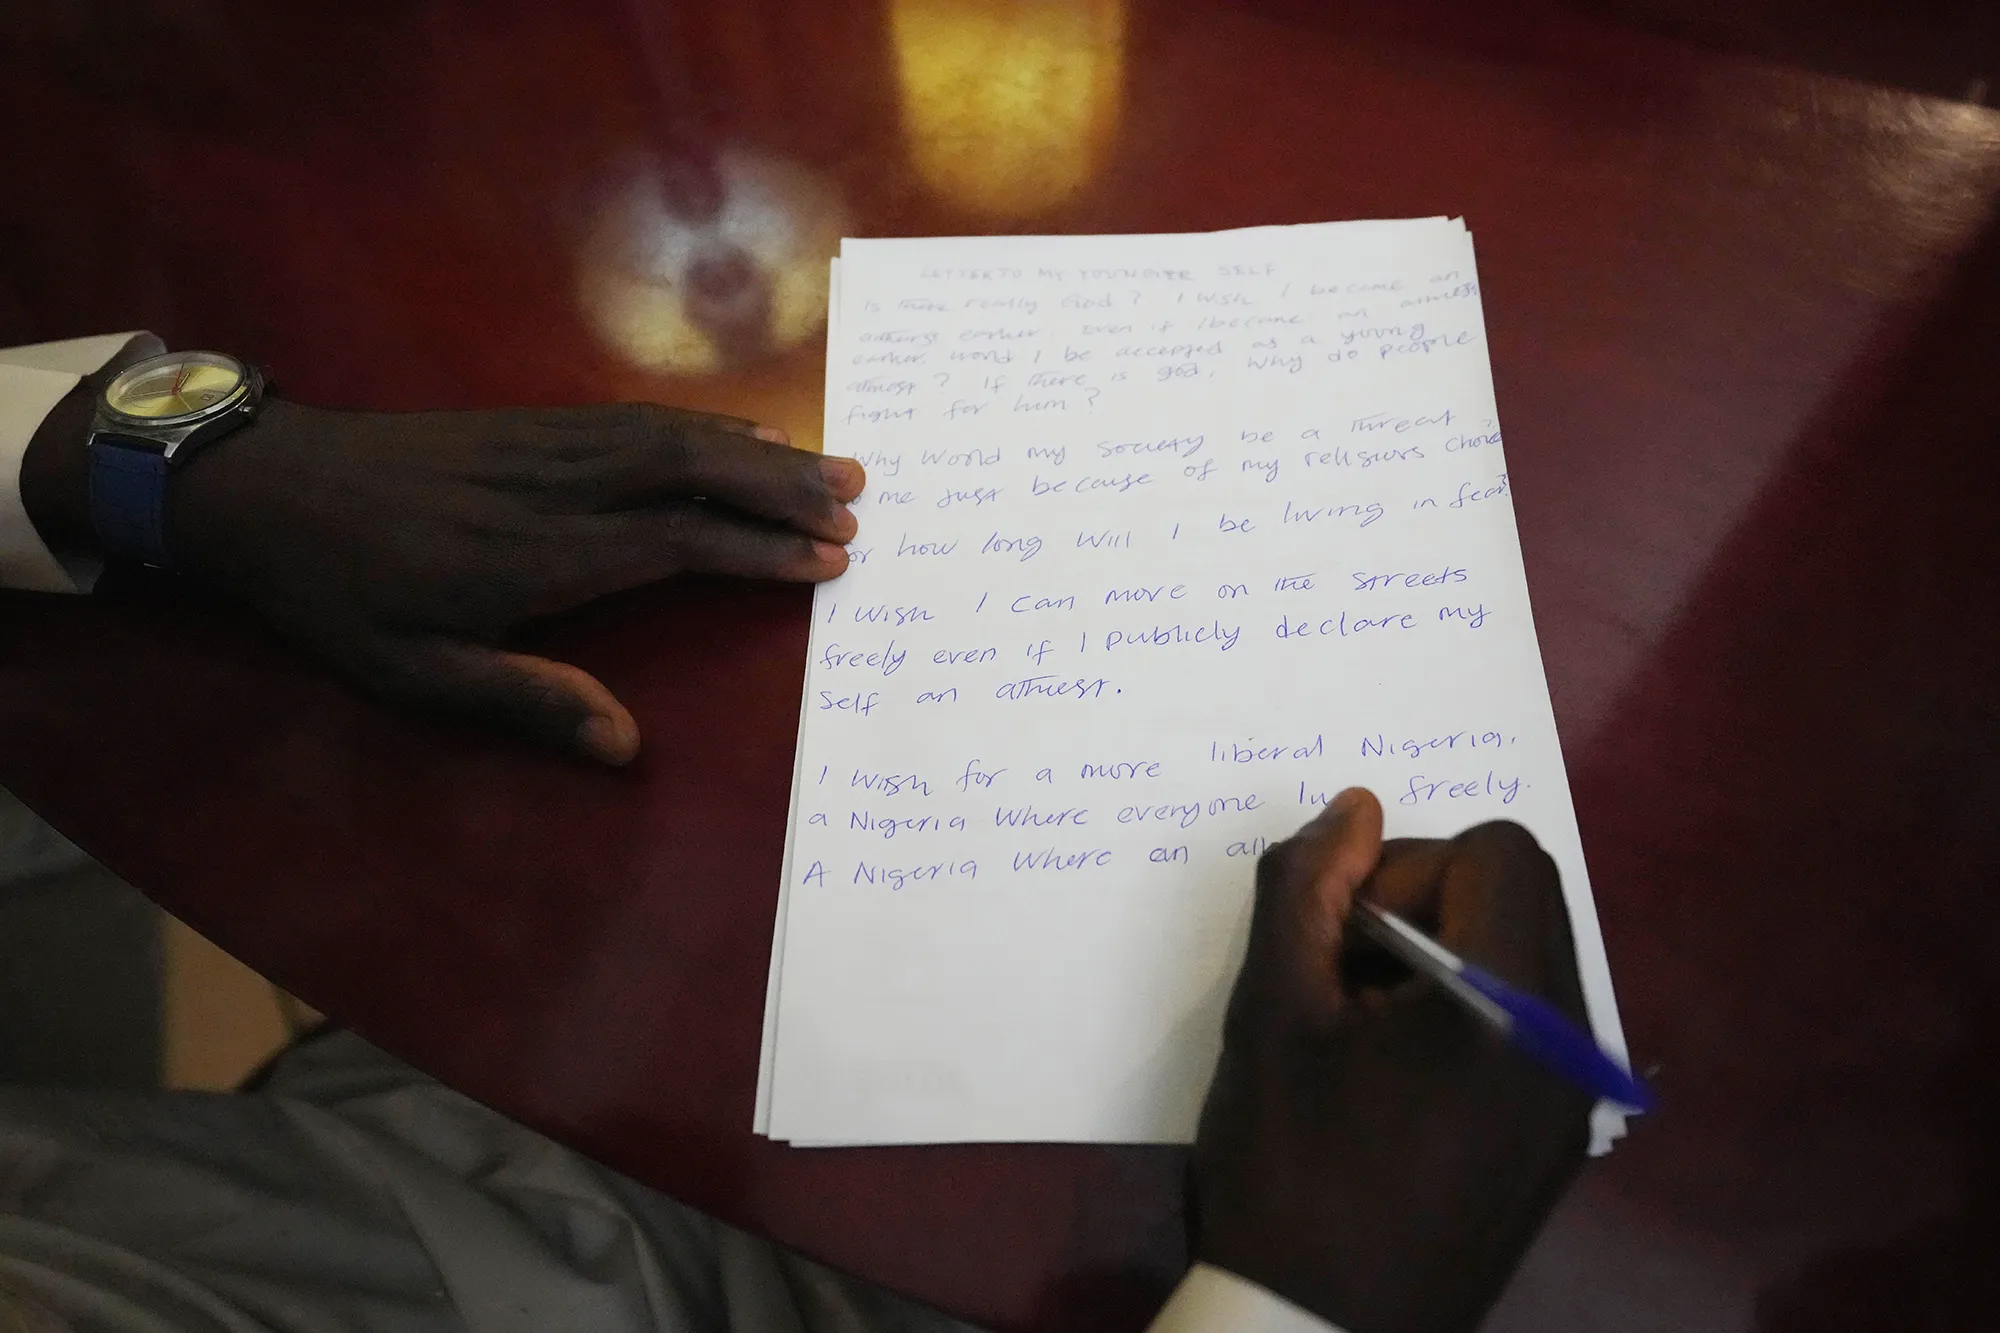 LETTER TO MY YOUNGER SELF
Is there really God? I wish I became an
atheist earlier. Even if I became an atheist
earlier, world I be accepted as a young
atheist? If there is god, why do people
fight for him?
Why world my society be a threat
me just because of my religious choice?
or how long will I be living in fear?
I wish I can move on the streets
freely even if I publicly declare my
self an athiest.
I wish for a more liberal Nigeria,
a Nigeria where everyone freely.
A Nigeria where an